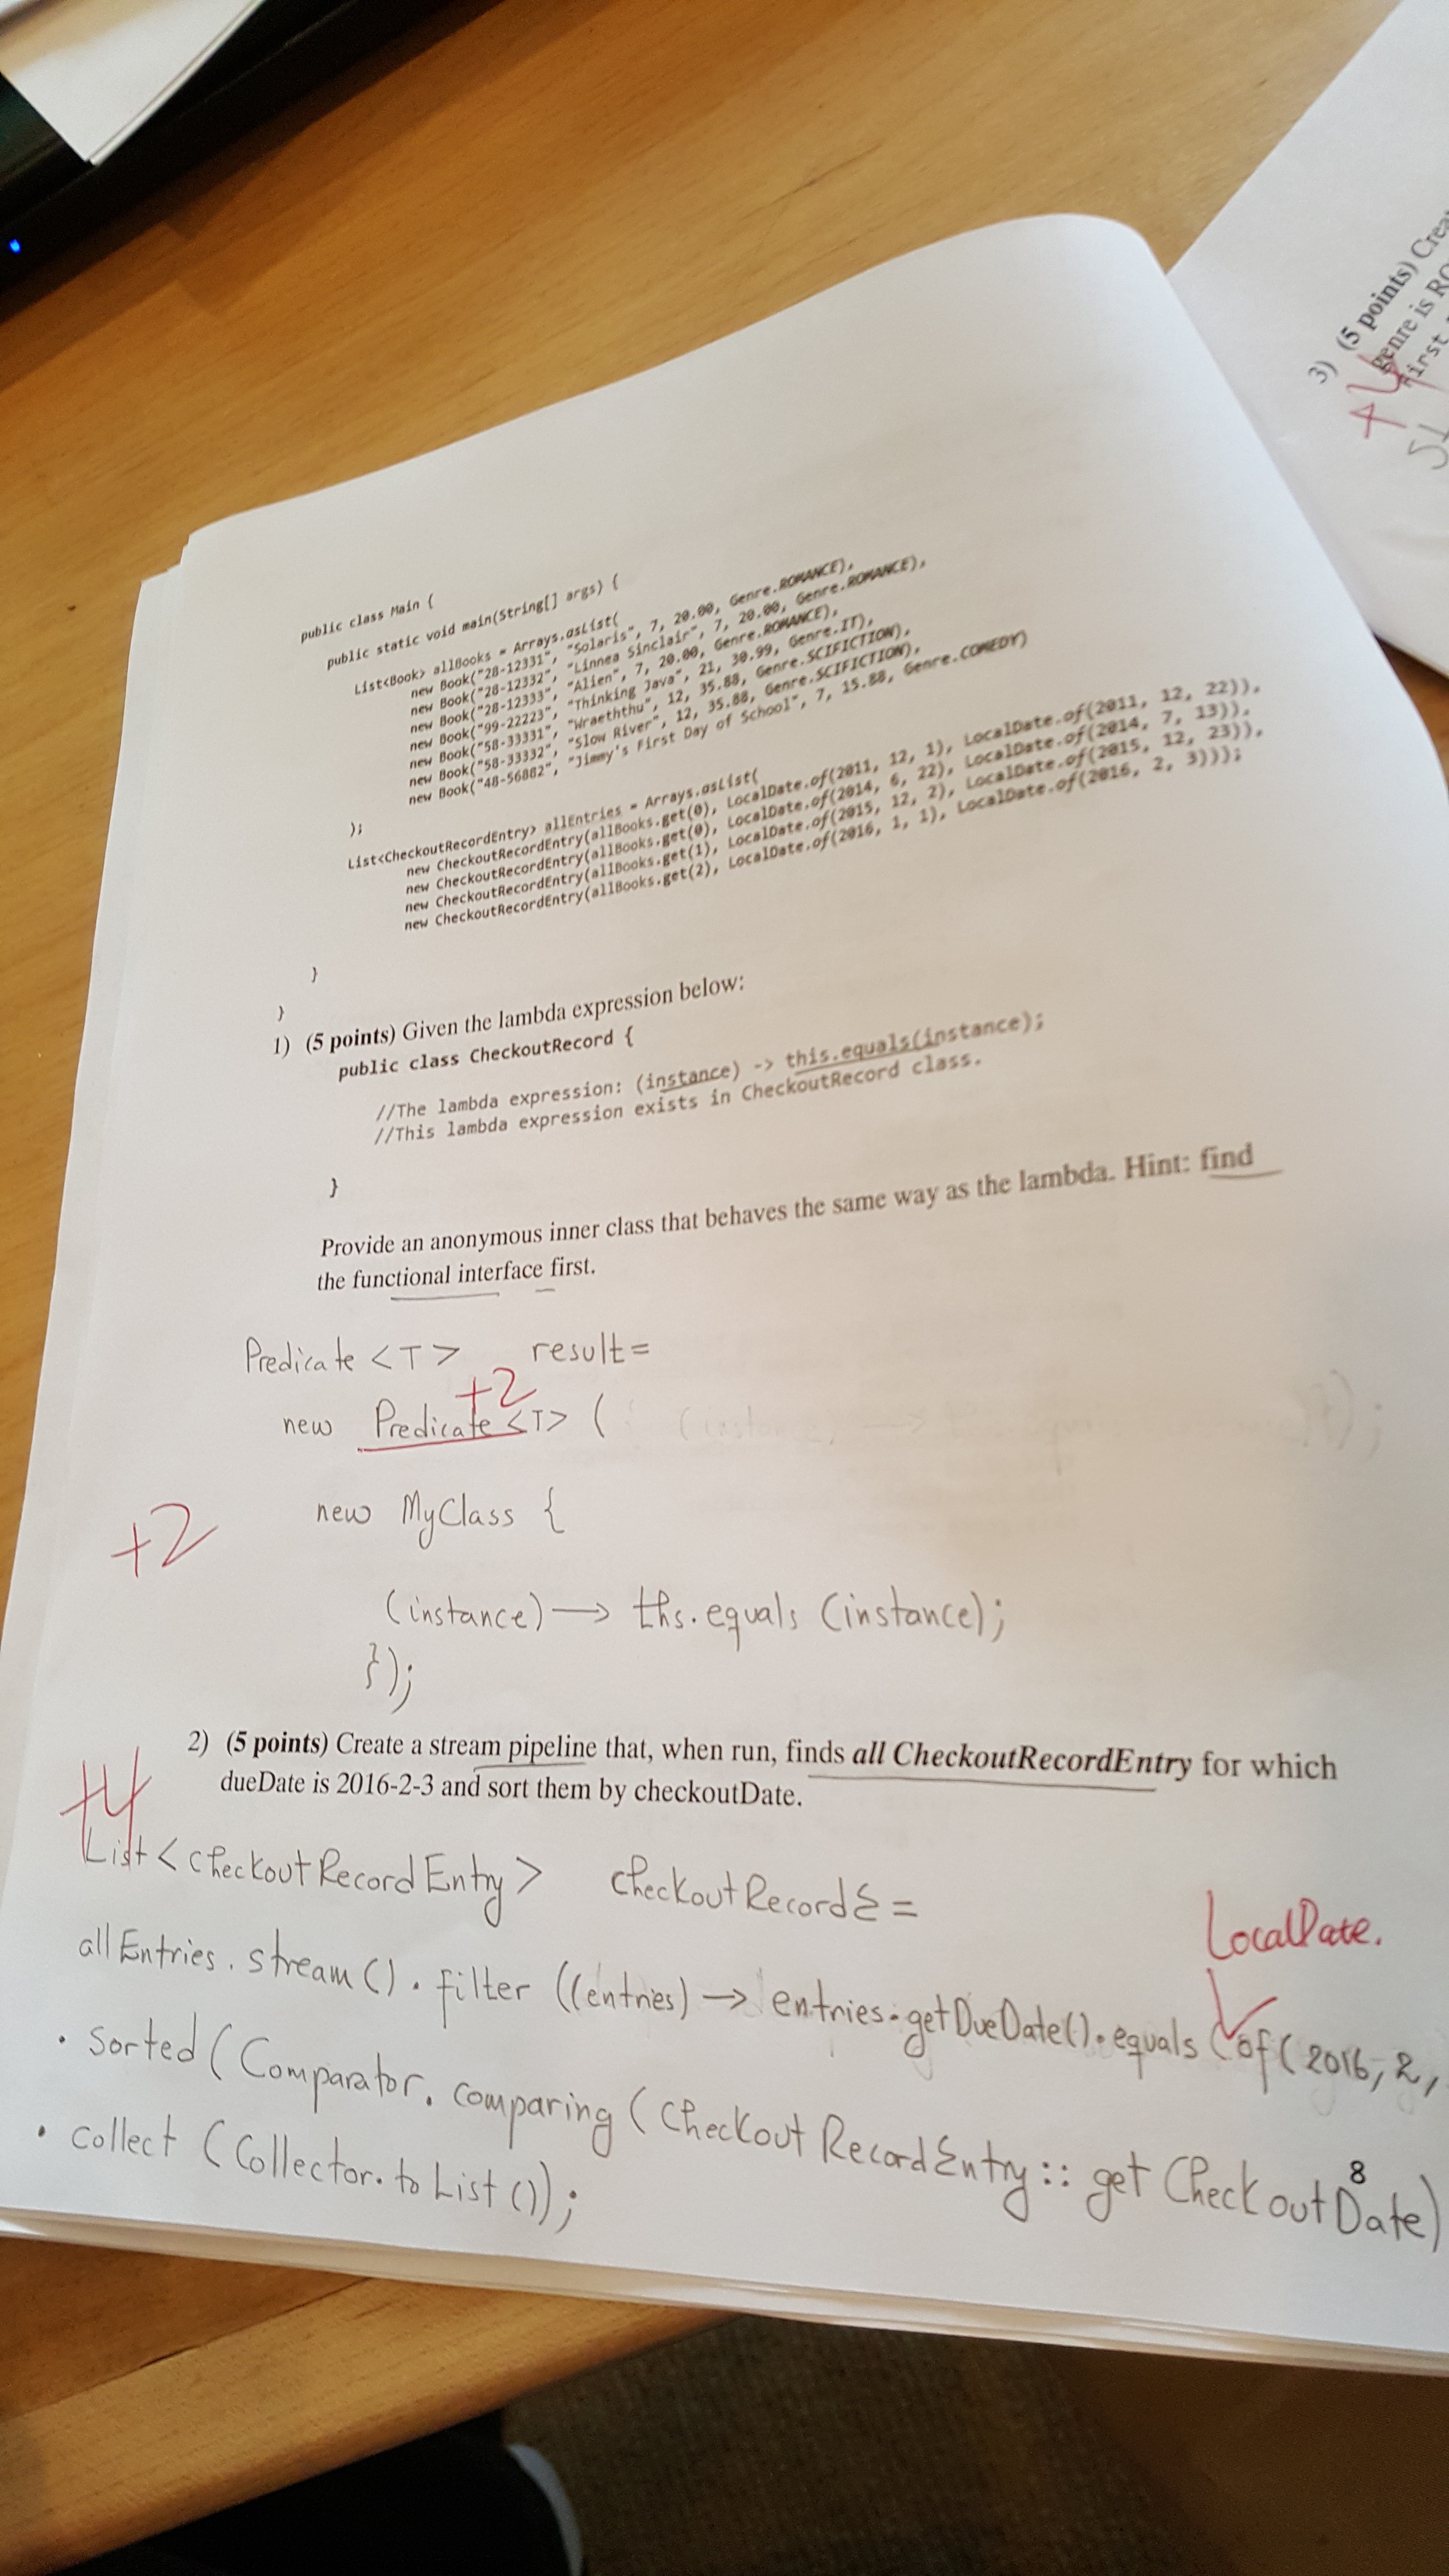 public class Main {
public static void main(String[] args) {
List<Book> allBooks = Arrays.asList(
new Book("28-12331", "Solaris", 7, 20.00, Genre.ROMANCE),
new Book("28-12332", "Linnea Sinclair", 7, 20.00, Genre.ROMANCE),
new Book("28-12333", "Alien", 7, 20.00, Genre.ROMANCE),
new Book("99-22223", "Thinking Java", 21, 30.99, Genre.IT),
new Book("58-33331", "Wraeththu", 12, 35.88, Genre.SCIFICTION),
new Book("58-33332", "Slow River", 12, 35.88, Genre.SCIFICTION),
new Book("48-56882", "Jimmy's First Day of School", 7, 15.88, Genre.COMEDY)
);
List<CheckoutRecordEntry> allEntries = Arrays.asList(
new CheckoutRecordEntry(allBooks.get(0), LocalDate.of(2011, 12, 1), LocalDate.of(2011, 12, 22)),
new CheckoutRecordEntry(allBooks.get(0), LocalDate.of(2014, 6, 22), LocalDate.of(2014, 7, 13)),
new CheckoutRecordEntry(allBooks.get(1), LocalDate.of(2015, 12, 2), LocalDate.of(2015, 12, 23)),
new CheckoutRecordEntry(allBooks.get(2), LocalDate.of(2016, 1, 1), LocalDate.of(2016, 2, 3)));
}
}
1) (5 points) Given the lambda expression below:
public class CheckoutRecord {
//The lambda expression: (instance) -> this.equals(instance);
//This lambda expression exists in CheckoutRecord class.
}
Provide an anonymous inner class that behaves the same way as the lambda. Hint: find
the functional interface first.
Predicate <T> result =
+2
new Predicate <T> (
new MyClass {
+2
(instance) → ths.equals (instance);
});
2) (5 points) Create a stream pipeline that, when run, finds all CheckoutRecordEntry for which
dueDate is 2016-2-3 and sort them by checkoutDate.
+4
List < CheckoutRecordEntry > CheckoutRecordS =
LocalDate.
allEntries. stream(). filter ((entries) → entries.getDueDate().equals (of(2016, 2,
. sorted (Comparator. comparing (CheckoutRecordEntry :: getCheckoutDate)
. collect (Collector.toList ());
8
3) (5 points) Crea
genre is RO
first
+4